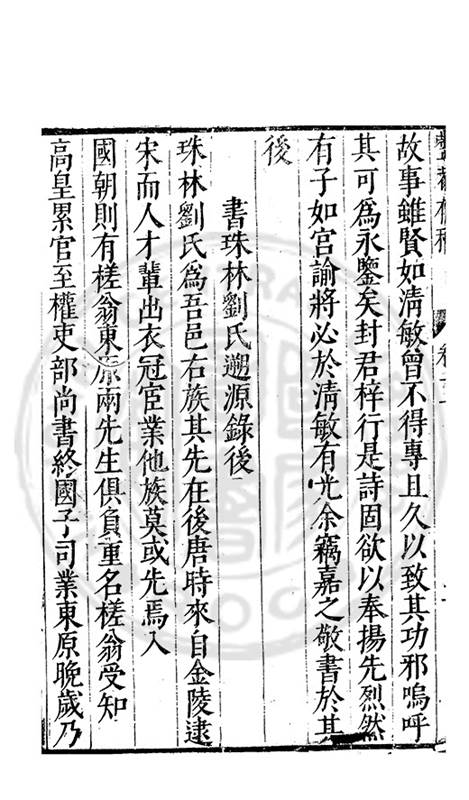 故事雖賢如清敏曾不得專且久以致其功邪嗚呼
其可為永鑒矣封君梓行是詩固欲以奉揚先烈然
有子如宫諭將必於清敏有光余竊嘉之敬書於其
後
書珠林劉氏遡源錄後
珠林劉氏為吾邑右族其先在後唐時來自金陵逮
宋而人才輩出衣冠宦業他族莫或先焉入
國朝則有槎翁東原兩先生俱負重名槎翁受知
高皇累官至權吏部尚書終國子司業東原晚歲乃